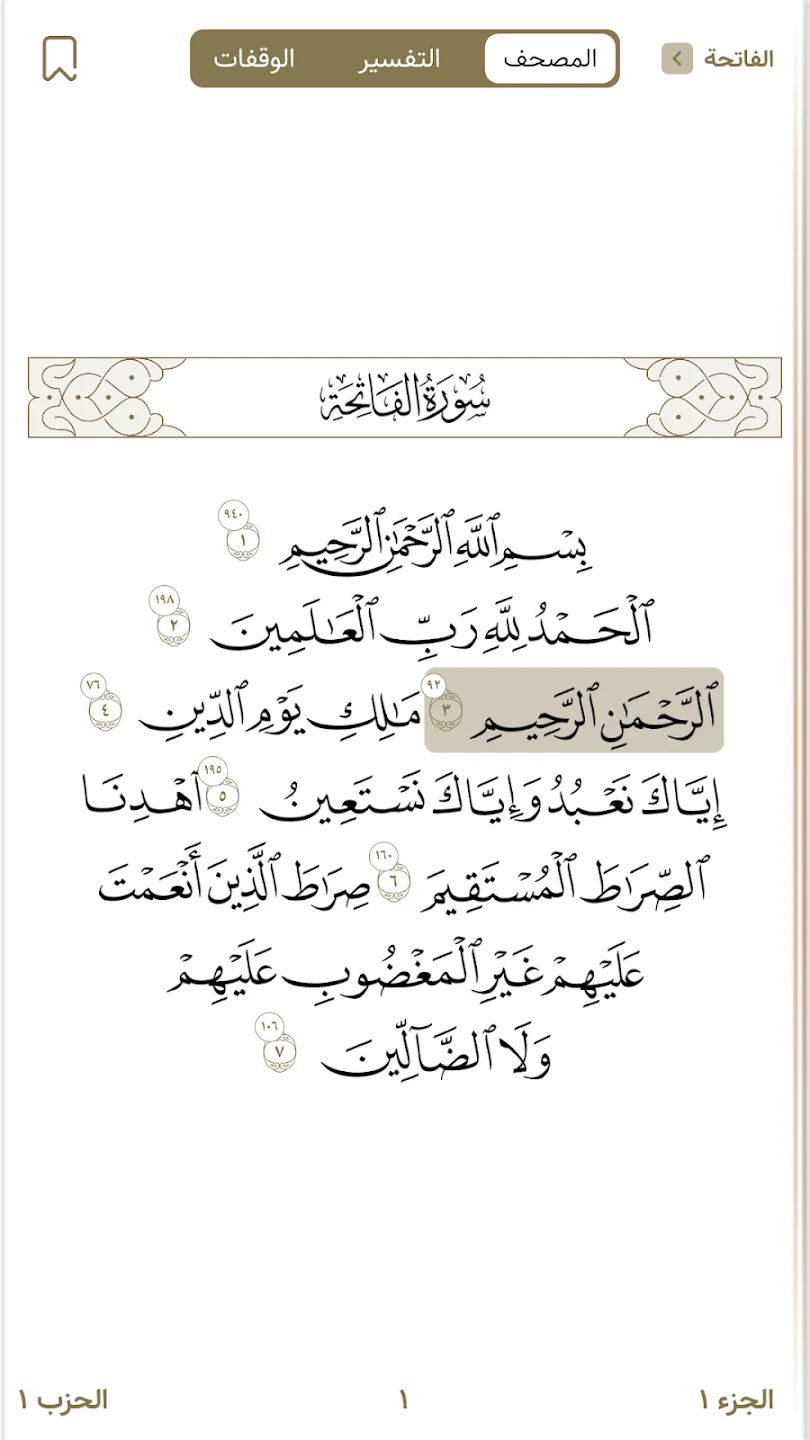 الفاتحة
المصحف
التفسير
الوقفات
سُورَةُ الفَاتِحَةِ
٩٤٠
بِسْمِ ٱللَّهِ ٱلرَّحْمَٰنِ ٱلرَّحِيمِ ١
١٩٨
ٱلْحَمْدُ لِلَّهِ رَبِّ ٱلْعَٰلَمِينَ ٢
٩٢ ٧٦
ٱلرَّحْمَٰنِ ٱلرَّحِيمِ ٣ مَٰلِكِ يَوْمِ ٱلدِّينِ ٤
١٩٥
إِيَّاكَ نَعْبُدُ وَإِيَّاكَ نَسْتَعِينُ ٥ ٱهْدِنَا
١٦٠
ٱلصِّرَٰطَ ٱلْمُسْتَقِيمَ ٦ صِرَٰطَ ٱلَّذِينَ أَنْعَمْتَ
عَلَيْهِمْ غَيْرِ ٱلْمَغْضُوبِ عَلَيْهِمْ
١٠٦
وَلَا ٱلضَّآلِّينَ ٧
الجزء ١
١
الحزب ١